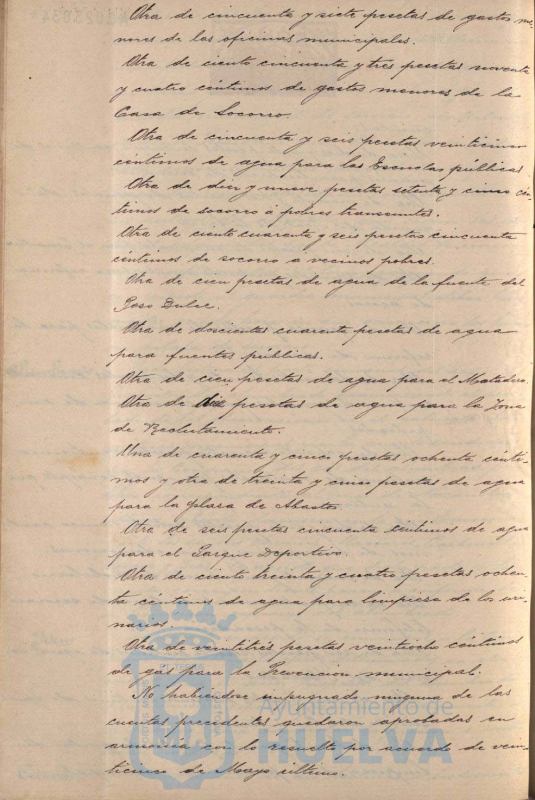 Otra de cincuenta y siete pesetas de gastos me-
nores de las oficinas municipales.
Otra de ciento cincuenta y tres pesetas noventa
y cuatro céntimos de gastos menores de la
Casa de Socorro.
Otra de cincuenta y seis pesetas veinticinco
céntimos de agua para las Escuelas públicas.
Otra de diez y nueve pesetas setenta y cinco cén-
timos de socorro á pobres transeuntes.
Otra de ciento cuarenta y seis pesetas cincuenta
céntimos de socorro a vecinos pobres.
Otra de cien pesetas de agua de la fuente del
Poso Dulce.
Otra de doscientas cuarenta pesetas de agua
para fuentes públicas.
Otra de cien pesetas de agua para el Matadero.
Otra de diez pesetas de agua para la Zona
de Reclutamiento.
Una de cuarenta y cinco pesetas ochenta cénti-
mos y otra de treinta y cinco pesetas de agua
para la plaza de Abastos.
Otra de seis pesetas cincuenta céntimos de agua
para el Parque Deportivo.
Otra de ciento treinta y cuatro pesetas ochen-
ta céntimos de agua para limpiesa de los uri-
narios.
Otra de veintitrés pesetas veintiocho céntimos
de gas para la Prevención municipal.
No habiéndose impugnado ninguna de las
cuentas precedentes quedaron aprobadas en
armonía con lo resuelto por acuerdo de vein-
ticinco de Mayo último.
Ayuntamiento de
HUELVA